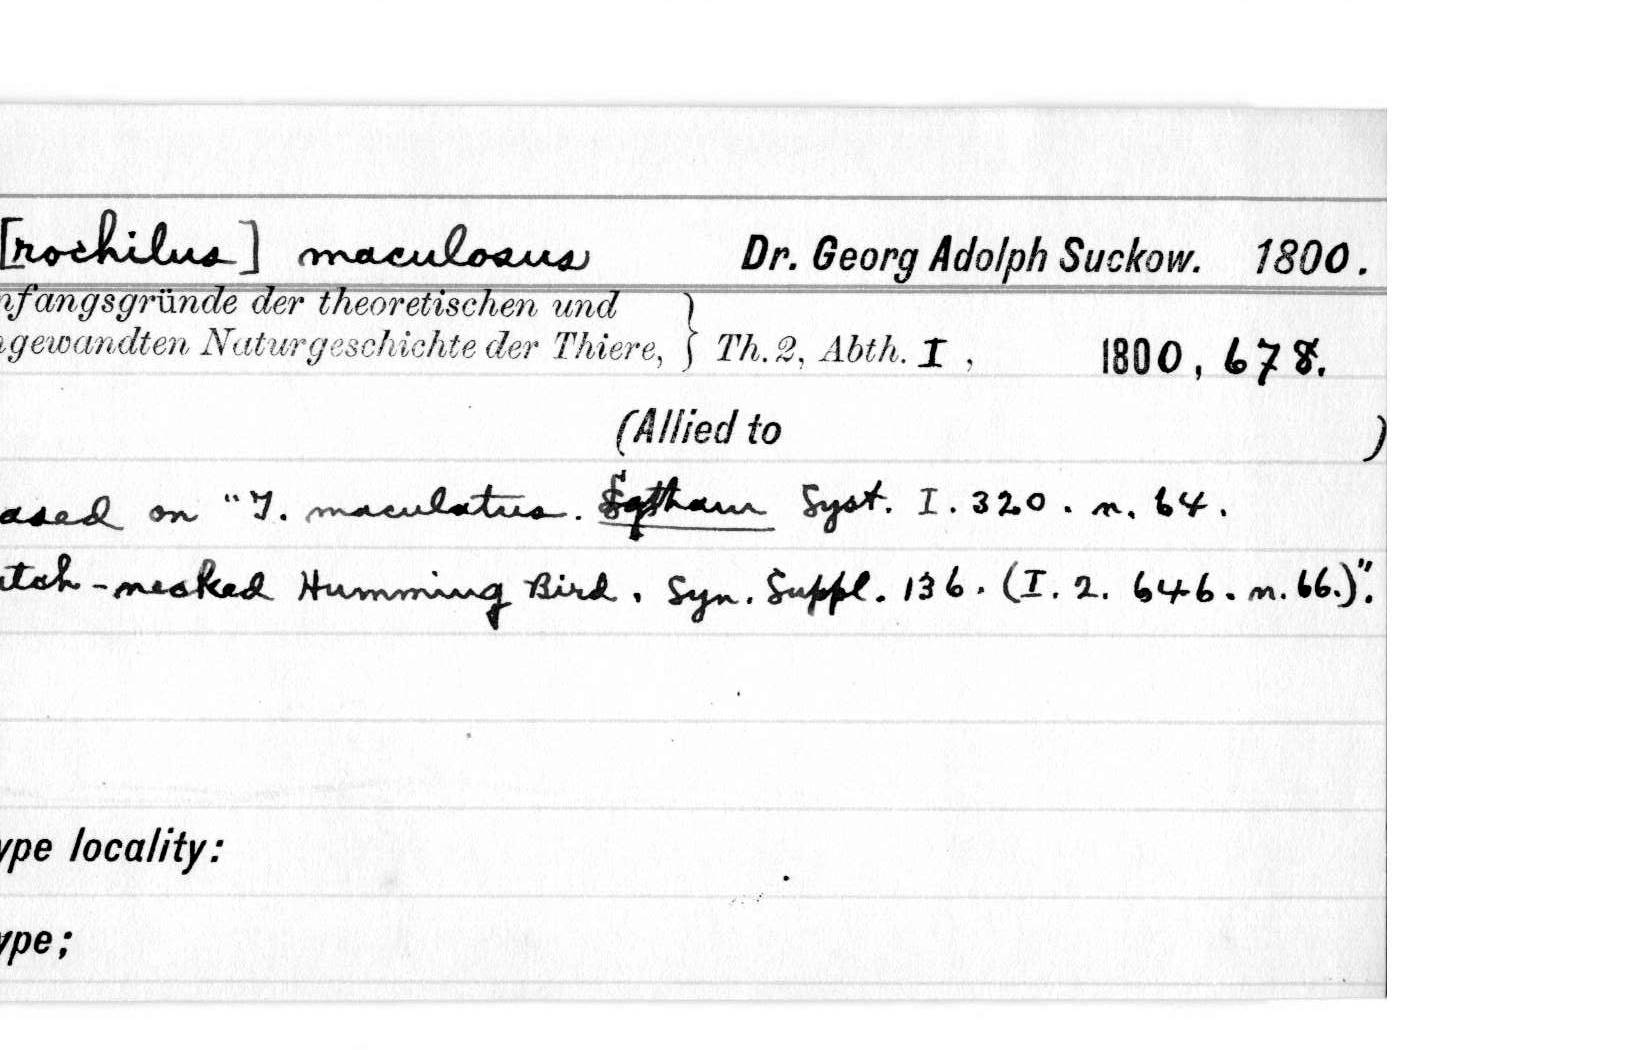 [rochilus] maculosus Dr. Georg Adolph Suckow. 1800.
nfangsgründe der theoretischen und
gewandten Naturgeschichte der Thiere, } Th. 2, Abth. I, 1800, 678.
(Allied to )
ased on "T. maculatus. Syst. I. 320. n. 64.
atch-necked Humming Bird. Syn. Suppl. 136. (I. 2. 646. n. 66.)".
ype locality:
ype;